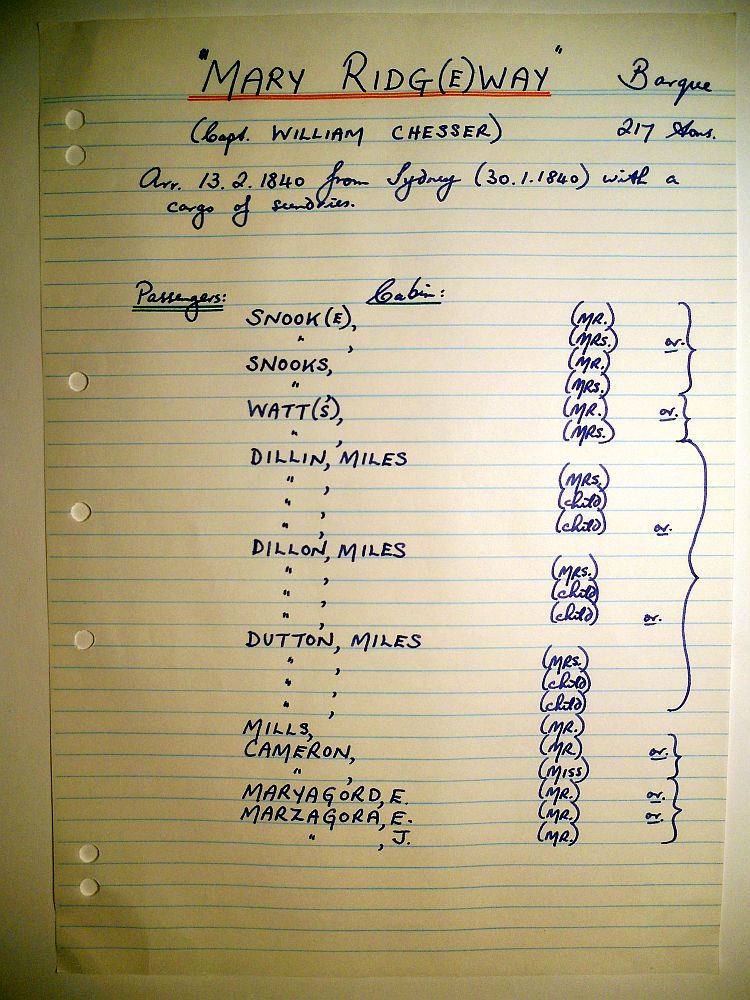 "MARY RIDG(E)WAY" Barque
(Capt. WILLIAM CHESSER) 217 tons.
Arr. 13.2.1840 from Sydney (30.1.1840) with a
cargo of sundries.
Passengers: Cabin:
SNOOK(E), (MR.)
" , (MRS.) or.
SNOOKS, (MR.)
" , (MRS.)
WATT(S), (MR.) or.
" , (MRS.)
DILLIN, MILES
" , (MRS.)
" , (child)
" , (child) or.
DILLON, MILES
" , (MRS.)
" , (child)
" , (child) or.
DUTTON, MILES
" , (MRS.)
" , (child)
" , (child)
MILLS, (MR.)
CAMERON, (MR.) or.
" , (MISS)
MARYAGORD, E. (MR.) or.
MARZAGORA, E. (MR.) or.
" , J. (MR.)